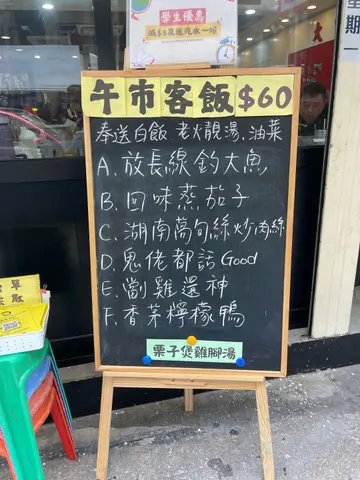 學生優惠
減$5及施汽水一罐
午市客飯$60
奉送白飯.老火靚湯.油菜
A. 放長線釣大魚
B. 回味蒸茄子
C. 湖南萬旬絲炒肉絲
D. 鬼佬都話Good
E. 劏雞還神
F. 香茅檸檬鴨
栗子煲雞腳湯
星期